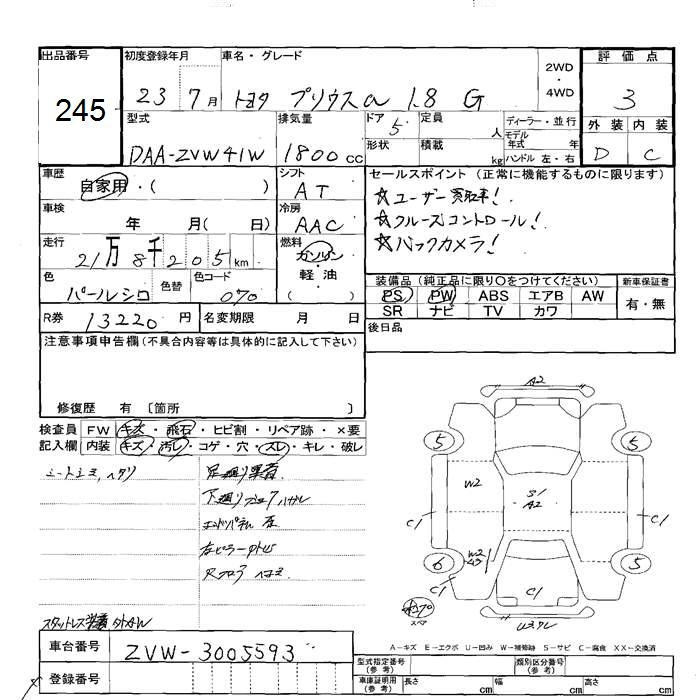 出品番号 初度登録年月 車名・グレード 2WD・4WD 評価点
245 23 7月 トヨタ プリウスα 1.8 G 3
型式 排気量 ドア 5 定員 人 ディーラー・並行 外装 内装
DAA-ZVW41W 1800cc 形状 積載 kg モデル年式 年 ハンドル 左・右 D C
車歴 自家用・( ) シフト AT セールスポイント (正常に機能するものに限ります)
車検 年 月( 日) 冷房 AAC ☆ユーザー買取車!
☆クルーズコントロール!
走行 21万8千205km 燃料 ガソリン・軽油 ( ) ☆バックカメラ!
色 パールシロ 色替 色コード 070
装備品 (純正品に限り○をつけてください) 新車保証書
PS PW ABS エアB AW 有・無
SR ナビ TV カワ
R券 13220円 名変期限 月 日 後日品
注意事項申告欄 (不具合内容等は具体的に記入して下さい)
修復歴 有 〔箇所 〕
検査員 FW キズ・飛石・ヒビ割・リペア跡・×要
記入欄 内装 キズ・汚レ・コゲ・穴・スレ・キレ・破レ
A2
5 5
W2 S1
A2
C1 C1
6 W2 5
C1 C1
A-キズ E-エクボ U-凹み W-補修跡 S-サビ C-腐食 XX-交換済
車台番号 ZVW-3005593
登録番号
型式指定番号 (参考) 類別区分番号 (参考)
車庫証明用 (参考) 長さ cm 幅 cm 高さ cm